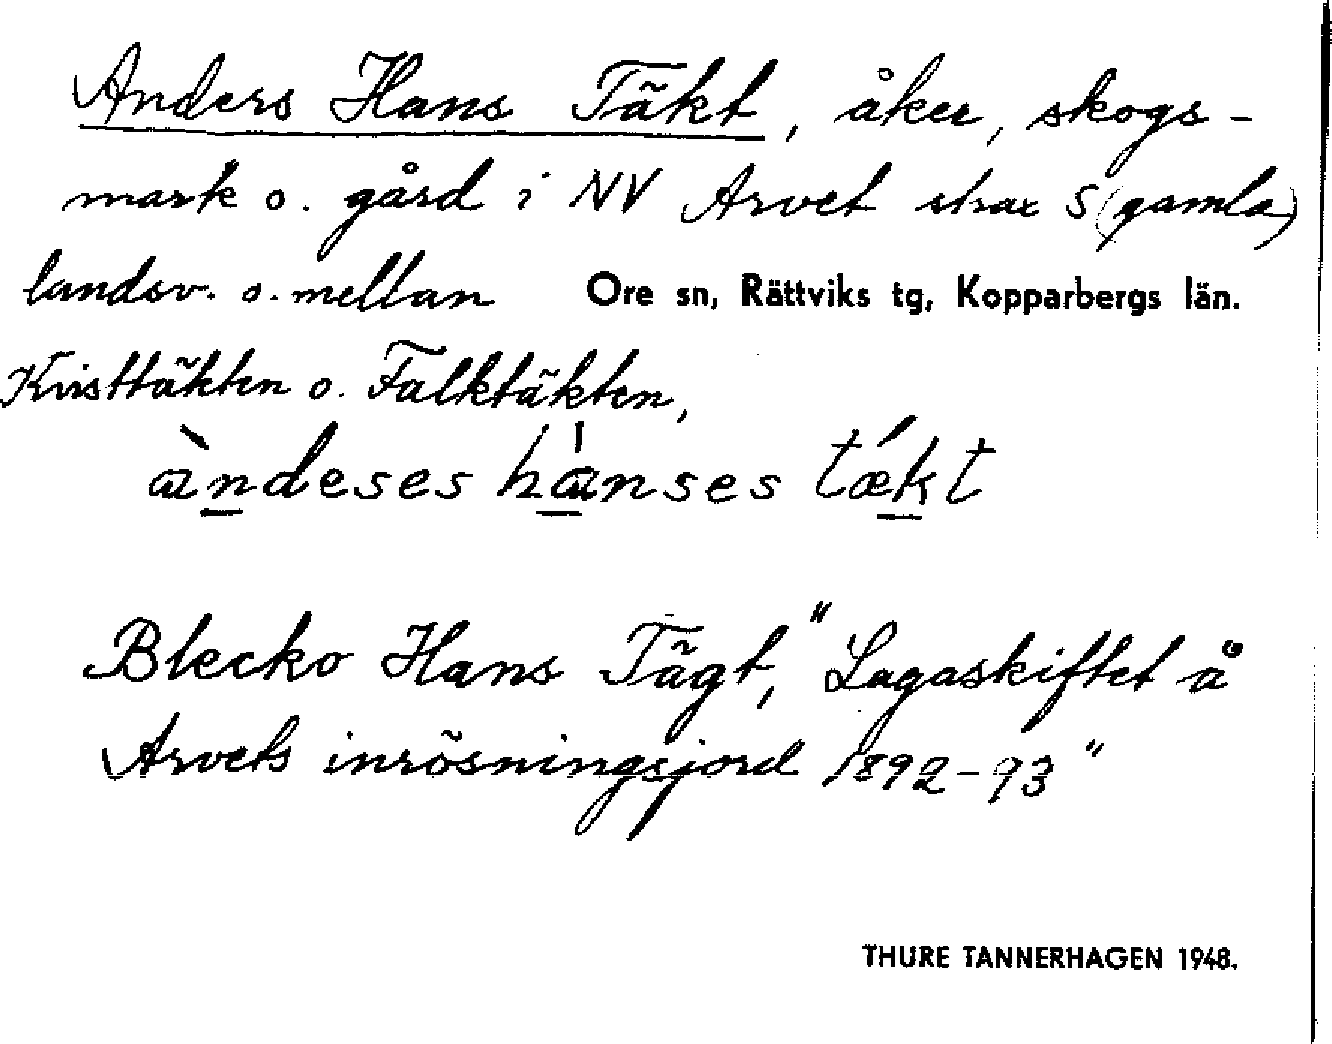 Anders Hans Täkt, åker, skogs-
mark o. gård i NV Arvet strax S (gamla)
landsv. o. mellan Ore sn, Rättviks tg, Kopparbergs län.
Kristtäkten o. Falktäkten,
àndeses hánses tǽkt
Blecko Hans Tägt, "Lagaskiftet å
Arvets inrösningsjord 1892-93"
THURE TANNERHAGEN 1948.